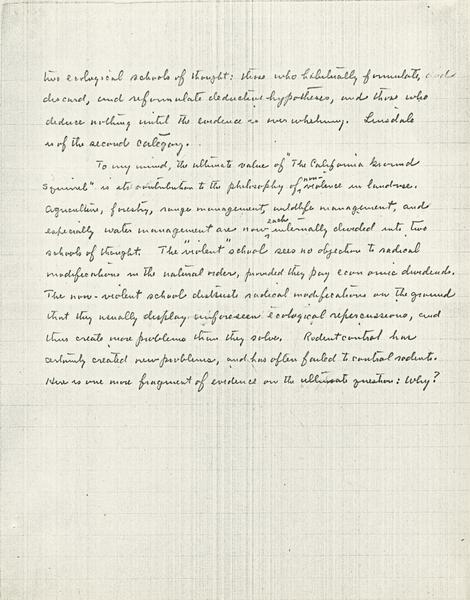 two ecological schools of thought: those who habitually formulate, and
discard, and reformulate deductive hypotheses, and those who
deduce nothing until the evidence is overwhelming. Linsdale
is of the second category.
To my mind, the ultimate value of "The California Ground
Squirrel" is its contribution to the philosophy of non-violence in land-use.
Agriculture, forestry, range management, wildlife management, and
especially water management are now each internally divided into two
schools of thought. The "violent" school sees no objection to radical
modifications in the natural order, provided they pay economic dividends.
The non-violent schools distrusts radical modifications on the ground
that they usually display unforeseen ecological repercussions, and
thus create more problems than they solve. Rodent control has
certainly created new problems, and has often failed to control rodents.
Here is one more fragment of evidence on the ultimate question: Why?